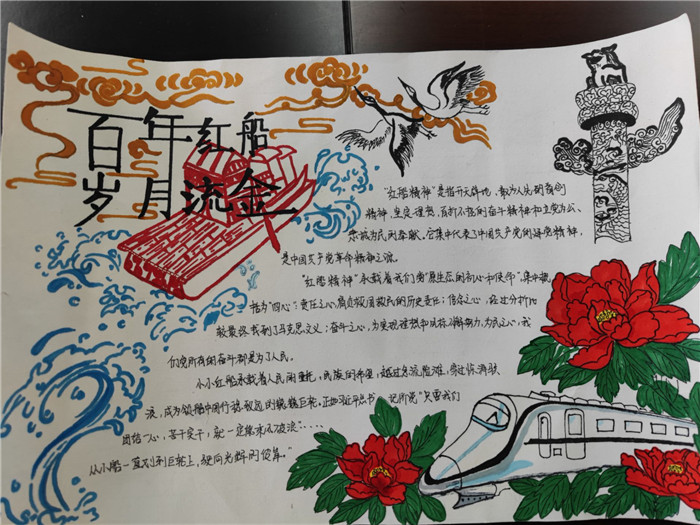 百年红船
岁月流金
"红船精神"是指开天辟地、敢为人先的首创
精神,坚定理想、百折不挠的奋斗精神和立党为公、
忠诚为民的奉献,它集中代表了中国共产党的建党精神,
是中国共产党革命精神之源。
"红船精神"承载着我们党"原生态的初心和使命"。集中概
括为"四心":责任之心,肩负救国救民的历史责任;信念之心,经过分析比
较最终找到了马克思主义;奋斗之心,为实现理想和目标不懈努力,为民之心,我
们党所有的奋斗都是为了人民。
小小红船承载着人民的重托,民族的希望,越过急流险滩,穿过惊涛骇
浪,成为领航中国行稳致远的巍巍巨轮。正如习近平总书记所说"只要我们
团结一心,苦干实干,就一定能乘风破浪"……
从小船一直划到巨轮上,驶向光辉的彼岸。"